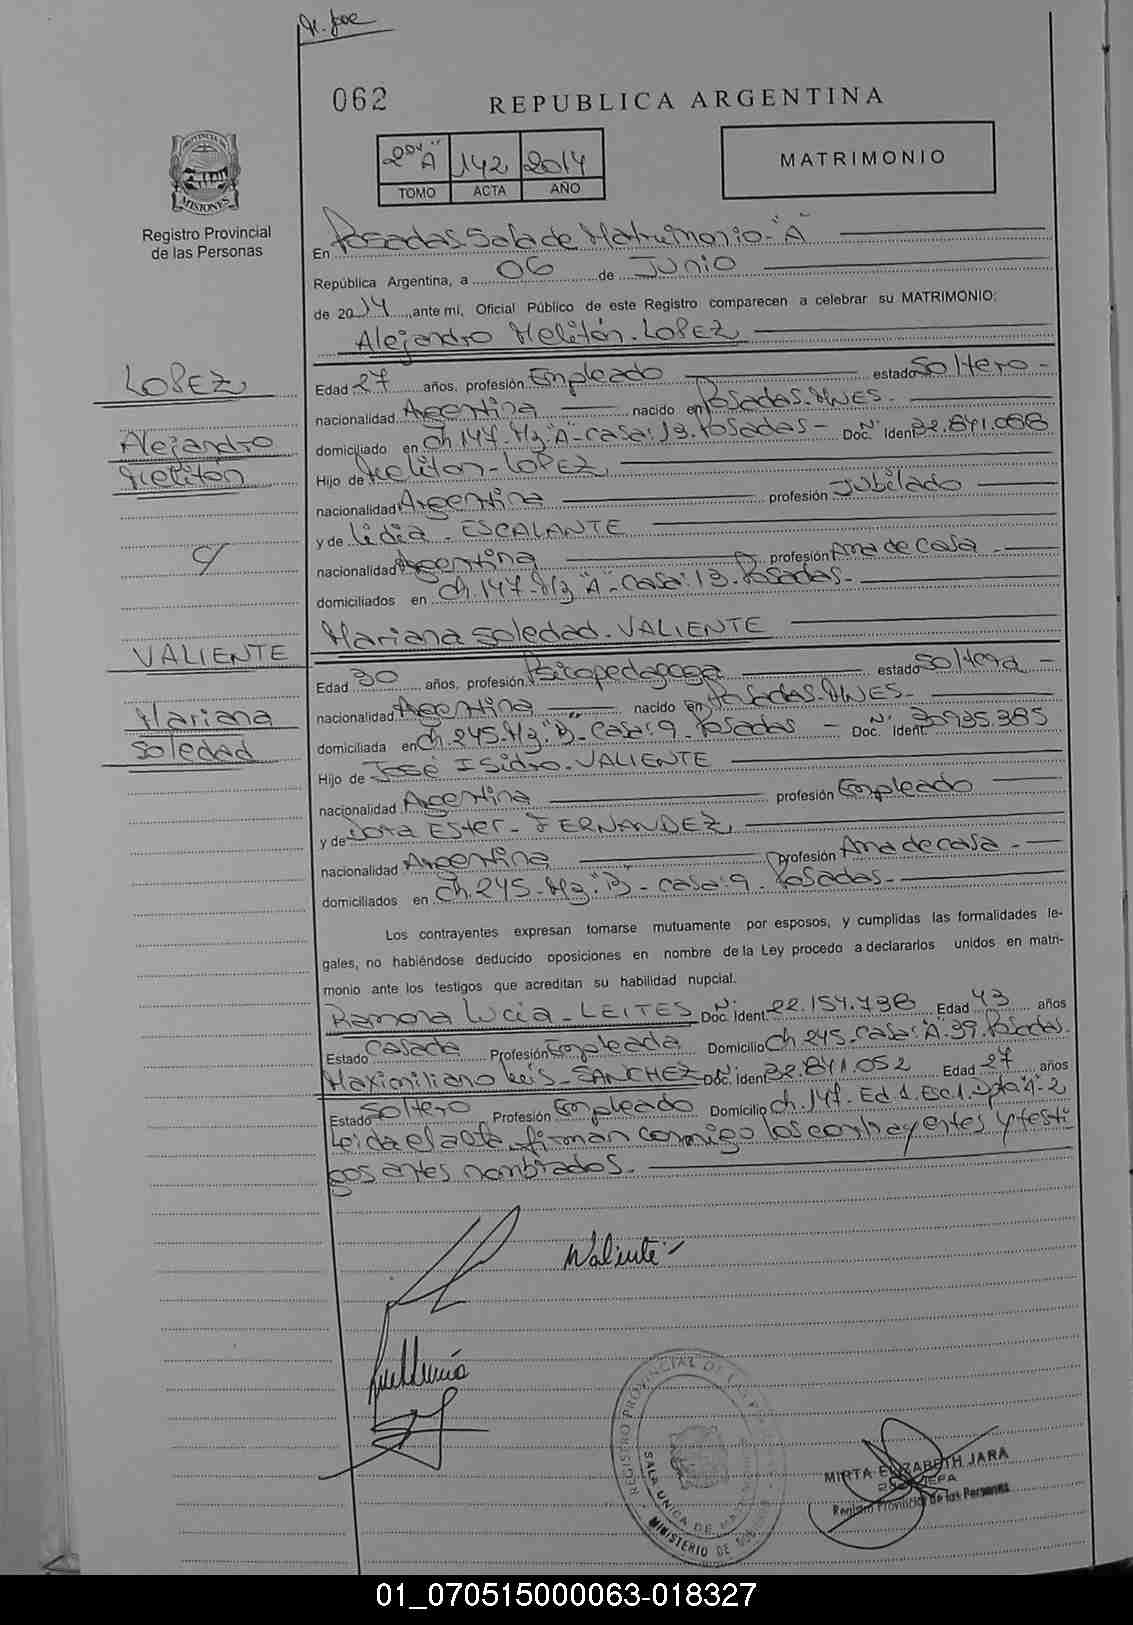 062
REPUBLICA ARGENTINA
2do "A" 142 2014
TOMO ACTA AÑO
MATRIMONIO
PROVINCIA DE
MISIONES
Registro Provincial
de las Personas
En Posadas Sala de Matrimonio-"A"
República Argentina, a 06 de Junio
de 2014, ante mi, Oficial Público de este Registro comparecen a celebrar su MATRIMONIO:
Alejandro Melitón. LOPEZ
LOPEZ
Alejandro
Melitón
y
VALIENTE
Mariana
Soledad
Edad 27 años, profesión Empleado estado Soltero-
nacionalidad Argentina nacido en Posadas. MNES.
domiciliado en Ch. 147. Mz "A"- Casa: 13. Posadas- Doc. Nº Ident 32.841.088
Hijo de Meliton-LOPEZ
nacionalidad Argentina profesión Jubilado
y de Lidia - ESCALANTE
nacionalidad Argentina profesión Ama de casa -
domiciliados en Ch. 147. Mz "A"- Casa: 13. Posadas.
Mariana Soledad. VALIENTE
Edad 30 años, profesión Psicopedagoga estado Soltera-
nacionalidad Argentina nacido en Posadas. MNES-
domiciliada en Ch. 245. Mz: "B"- Casa: 9. Posadas - Doc. Nº Ident 30.935.385
Hijo de José Isidro. VALIENTE
nacionalidad Argentina profesión Empleado
y de Dora Ester- FERNANDEZ
nacionalidad Argentina profesión Ama de casa -
domiciliados en Ch. 245. Mz: "B"- casa: 9. Posadas.
Los contrayentes expresan tomarse mutuamente por esposos, y cumplidas las formalidades le-
gales, no habiéndose deducido oposiciones en nombre de la Ley procedo a declararlos unidos en matri-
monio ante los testigos que acreditan su habilidad nupcial.
Ramona Lucia - LEITES Doc. Nº Ident. 22.154.798 Edad 43 años
Estado Casada Profesión Empleada Domicilio Ch 245- Casa: "A"-39. Posadas.
Maximiliano Luis- SANCHEZ Doc. Nº Ident 32.841.052 Edad 27 años
Estado Soltero Profesión Empleado Domicilio Ch. 147. Ed 1. Esc 1. Dpto
Leida el acta, firman conmigo los contrayentes y testi
gos antes nombrados.
Valiente
REGISTRO PROVINCIAL DE
SALA UNICA DE
MINISTERIO DE
MIRTA ELIZABETH JARA
JEFA
Registro Provincial de las Personas
01_070515000063-018327